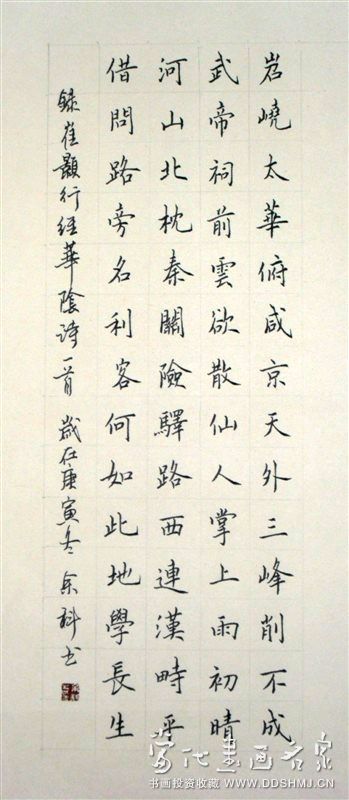 岧嶢太華俯咸京天外三峰削不成
武帝祠前雲欲散仙人掌上雨初晴
河山北枕秦關險驛路西連漢畤平
借問路旁名利客何如此地學長生
錄崔顥行經華陰詩一首 歲在庚寅冬 科书
当代书画名家
书画投资收藏 WWW.DDSHMJ.CN